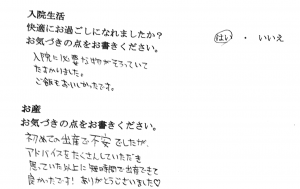 入院生活
快適にお過ごしになれましたか？ はい ・ いいえ
お気づきの点をお書きください。
入院に必要な物がそろっていて
たすかりました。
ご飯もおいしかったです。
お産
お気づきの点をお書きください。
初めての出産で不安でしたが、
アドバイスをたくさんしていただき
思っていた以上に短時間で出産できて
良かったです！ありがとうございました♡